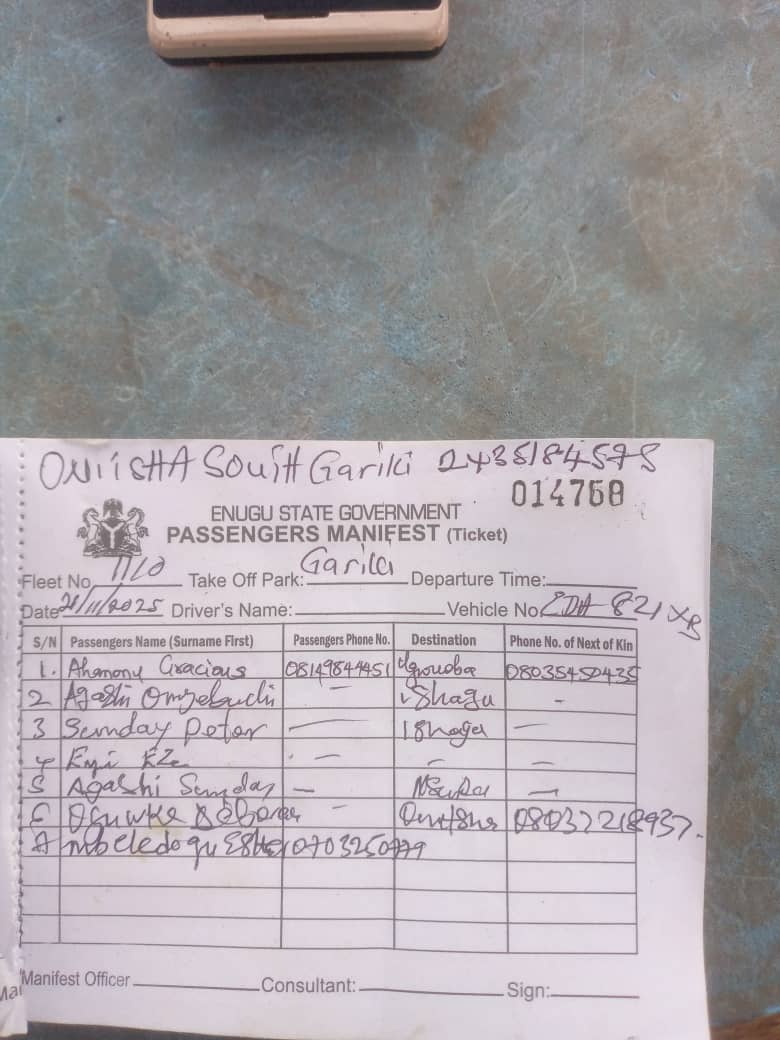 ONITSHA SOUTH Gariki 2435184578
014768
ENUGU STATE GOVERNMENT
PASSENGERS MANIFEST (Ticket)
Fleet No. 11/0 Take Off Park: Gariki Departure Time:
Date 21/11/2025 Driver's Name: Vehicle No EDA-821XB
S/N Passengers Name (Surname First) Passengers Phone No. Destination Phone No. of Next of Kin
1. Gracious 08149844451 08035450435
2 Agashi - Ishagu -
3 Sunday Peter - Ishaga -
4 Eze - - -
5 Agashi Sunday - Nsukka -
6 Debora - Onitsha 08037218937.
Manifest Officer Consultant: Sign: